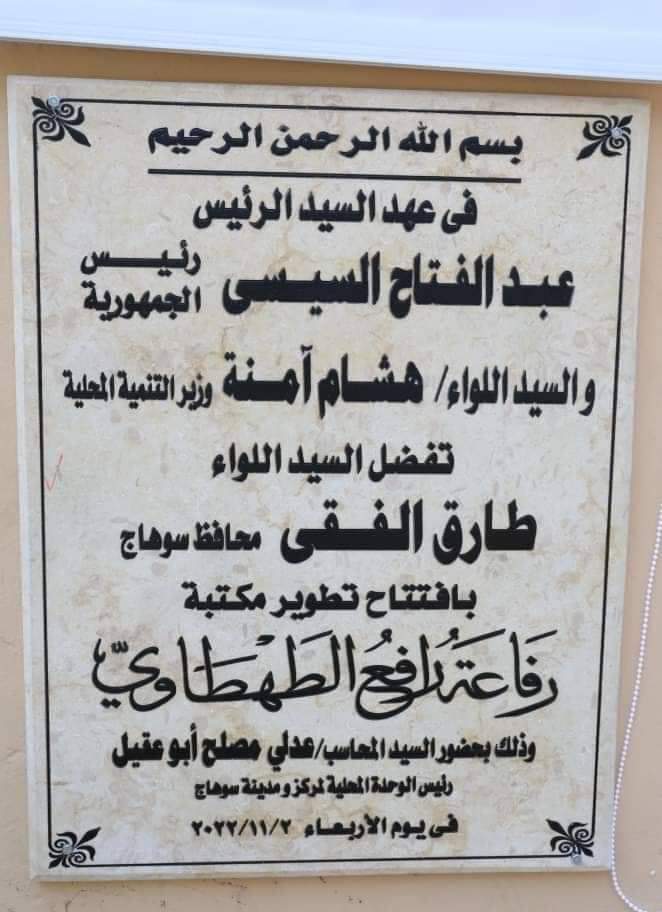 بسم الله الرحمن الرحيم
فى عهد السيد الرئيس
عبد الفتاح السيسى رئيس الجمهورية
والسيد اللواء/ هشام آمنة وزير التنمية المحلية
تفضل السيد اللواء
طارق الفقى محافظ سوهاج
بافتتاح تطوير مكتبة
رَفَاعَة رَافِع الطَهْطَاوِيّ
وذلك بحضور السيد المحاسب/عدلي مصلح أبو عقيل
رئيس الوحدة المحلية لمركز ومدينة سوهاج
فى يوم الأربعاء ٢٠٢٢/١١/٢